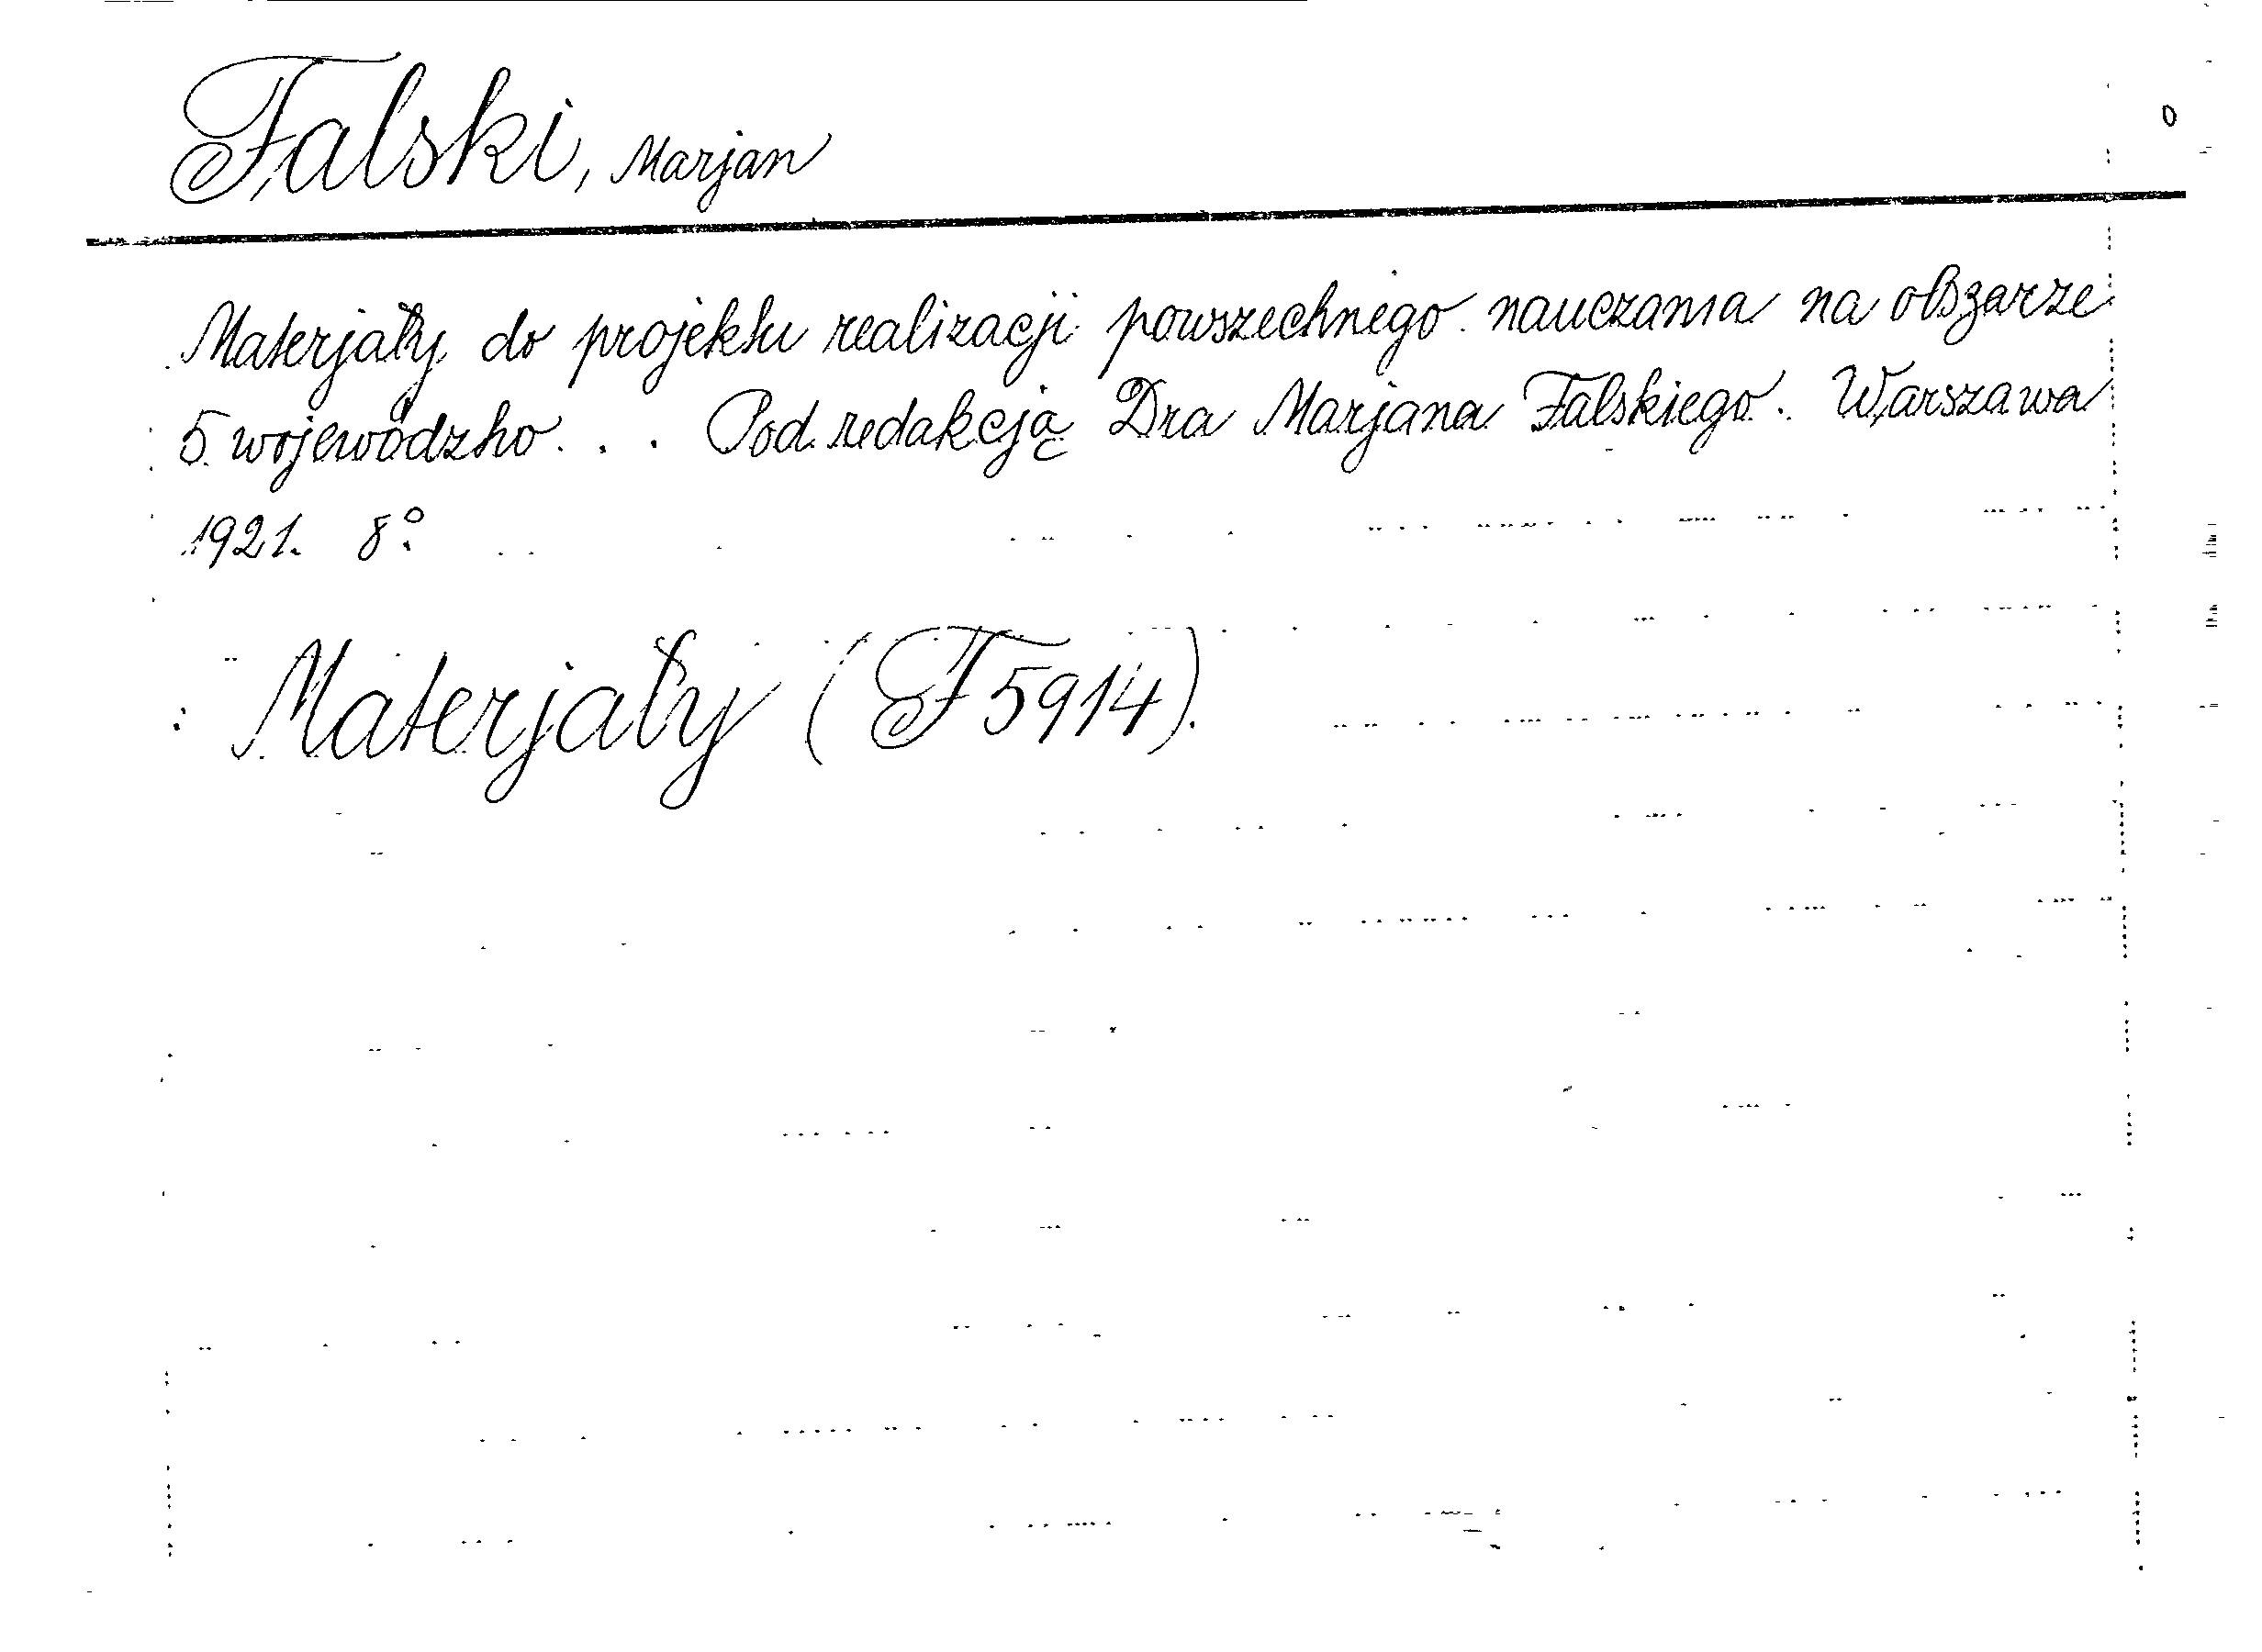 Falski, Marjan
Materjały do projektu realizacji powszechnego nauczania na obszarze
5 wojewódzho... Pod redakcją Dra Marjana Falskiego. Warszawa
1921. 8°.
Materjały (F 5914).